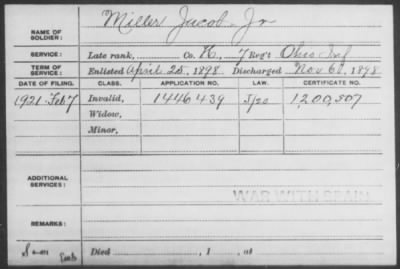 NAME OF SOLDIER: Miller Jacob Jr
SERVICE: Late rank, Co. K, 7 Reg't Ohio Inf
TERM OF SERVICE: Enlisted April 25, 1898. Discharged Nov 6, 1898
DATE OF FILING. CLASS. APPLICATION NO. LAW. CERTIFICATE NO.
1921 Feb 7 Invalid, 1446439 5/20 1,200,507
Widow,
Minor,
ADDITIONAL SERVICES:
WAR WITH SPAIN
REMARKS:
Died , 1 , at